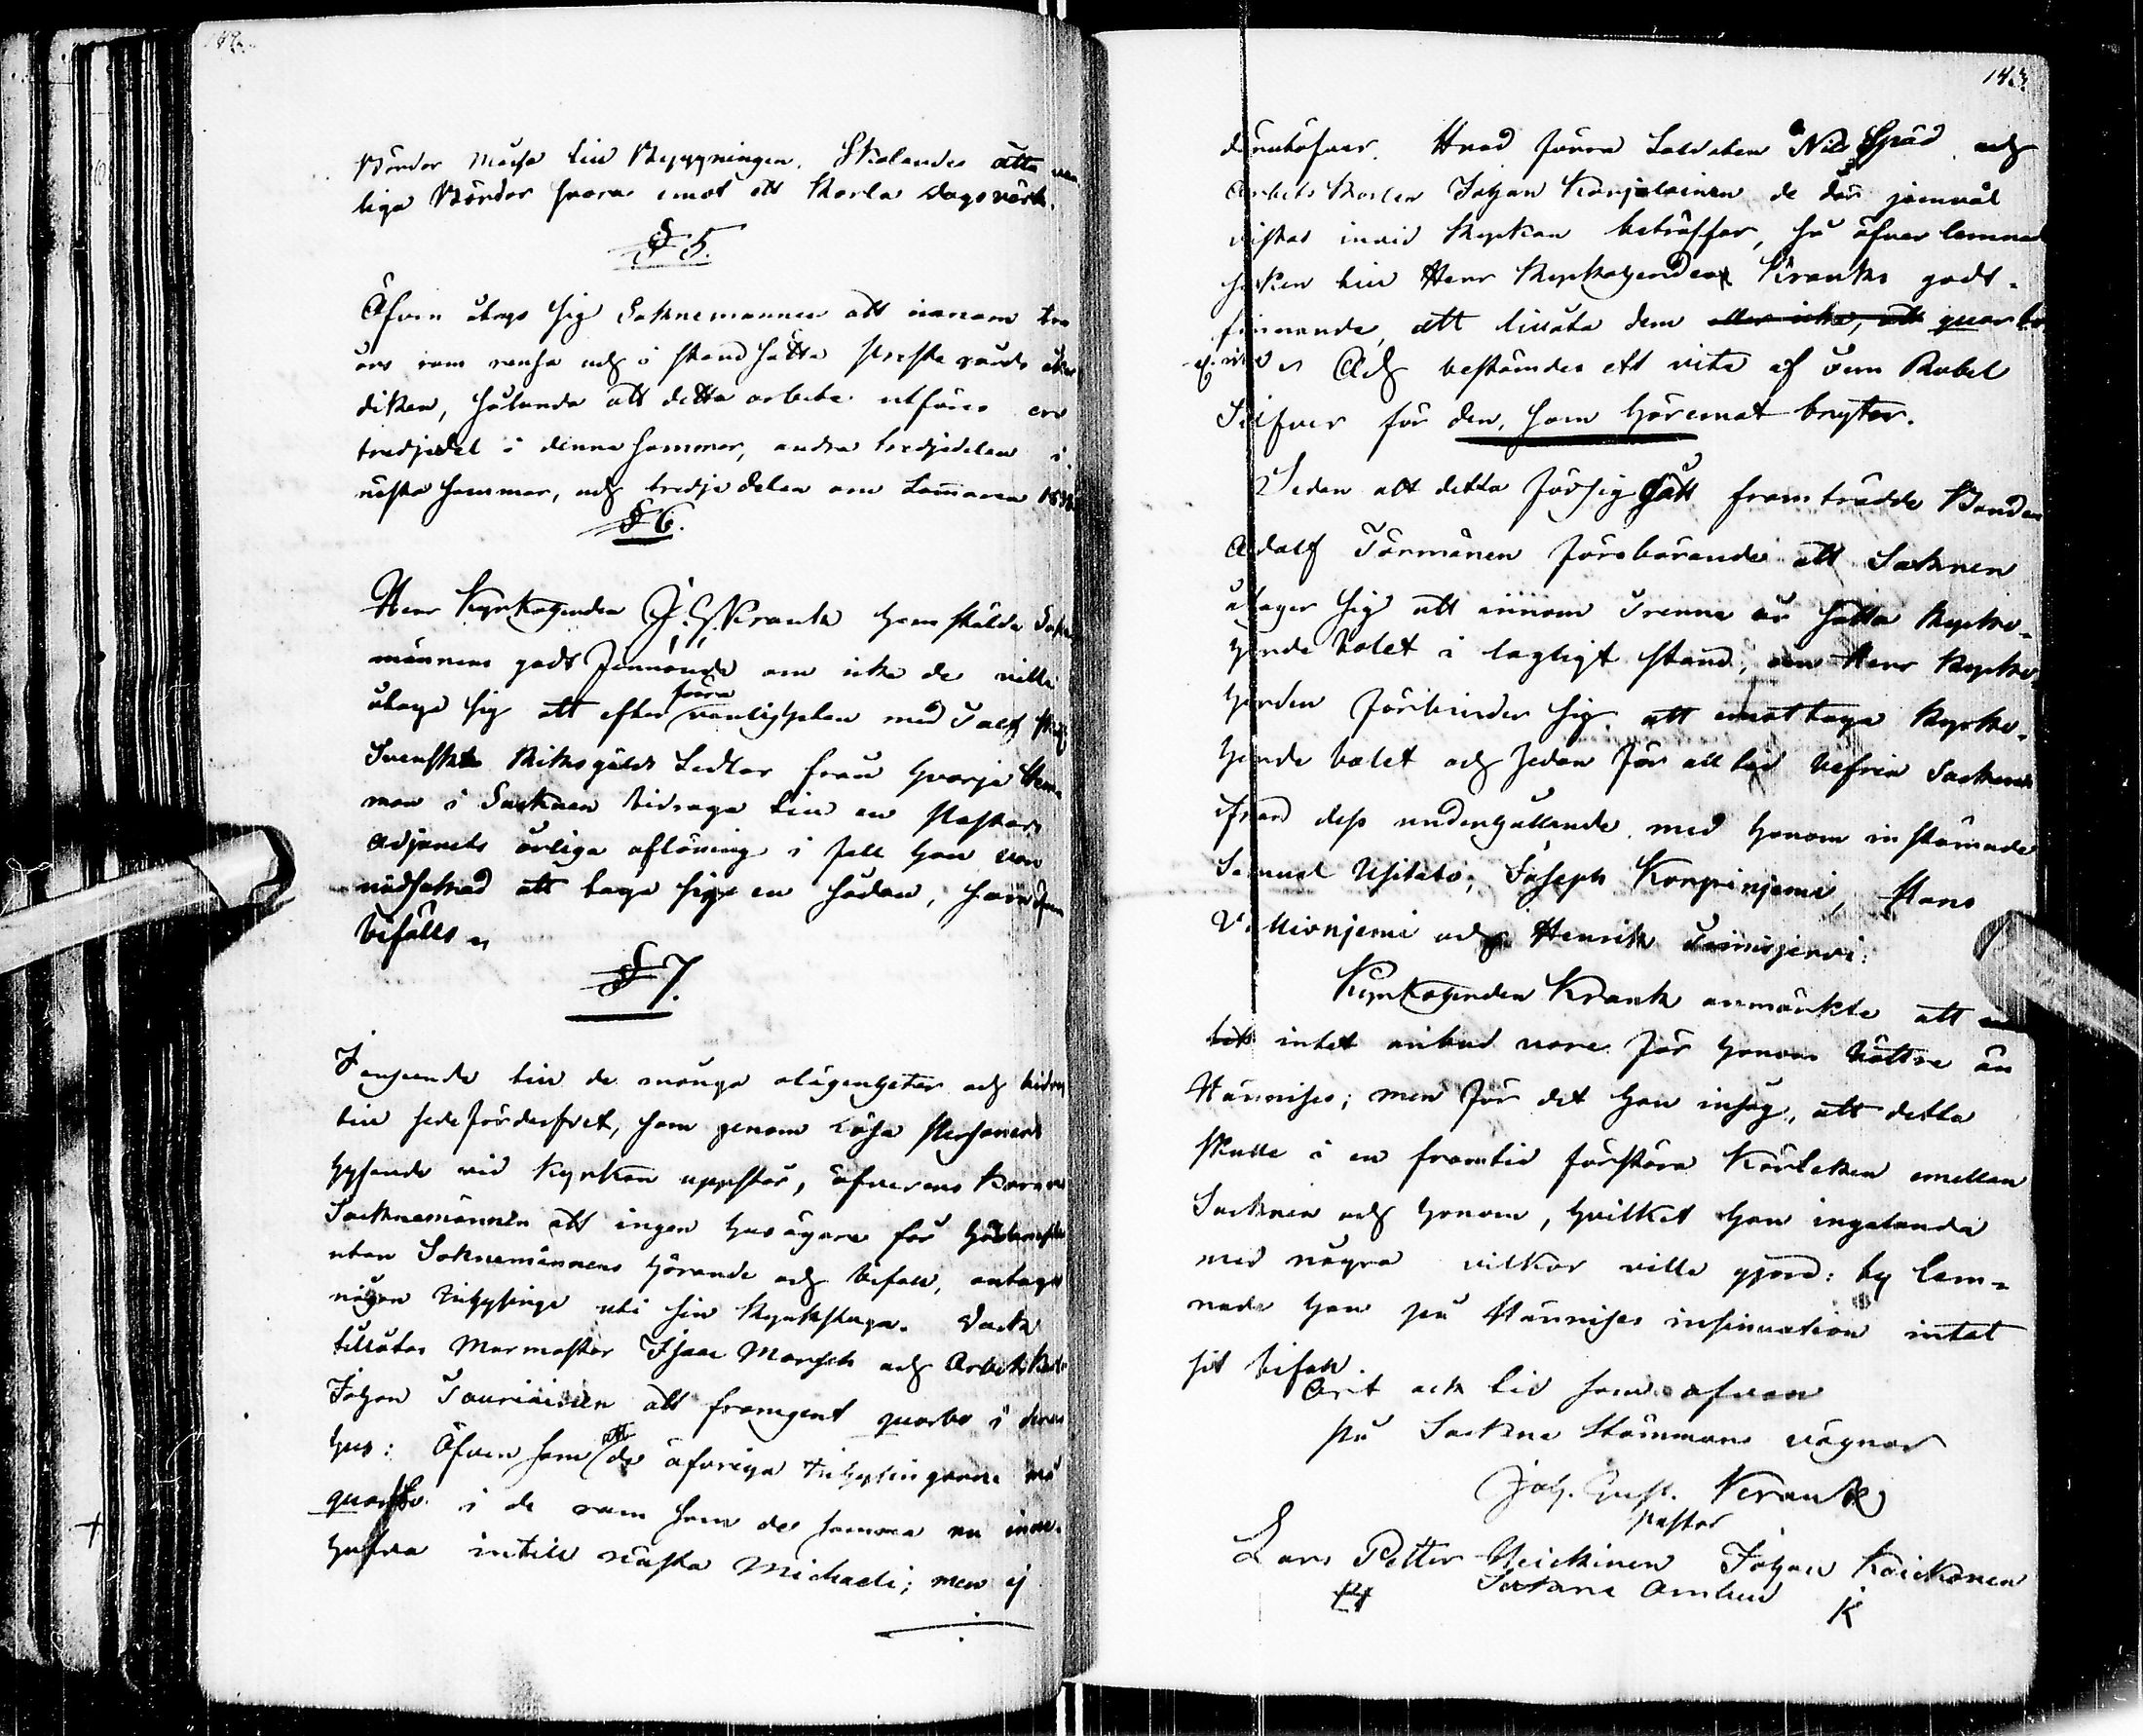 142.
Bördor Måssa till Byggningen. Skolandes åtta van
liga Bördor svara emot ett Karla Dagsvärk.
§ 5.
Äfven åtogo sig Soknemännen att innom tre
års rom rensa och i stånd sätta Prestegårds åker
diken, sålunda att detta arbete utföres en
tredjedel i denna sommar, andra tredjedelen i
nästa sommar, och tredje delen om Sommaren 1838
§ 6.
Herr Kyrkoherden J. G. Krank hemstälde Sokne
männens godtfinnande om icke de ville
åtaga sig att efter förra vanligheten med Tolf sk
Svenska Riksgälds Sedlar från hvarje Hem-
man i Soknen bidraga till en Pastors
Adjuncts årliga aflöning i fall han vore
nödsakad att taga sig en sådan, som
bifalls.
§ 7.
I anseende till de många olägenheter och bidrag
till sedeförderfvet, som genom Lösa Personers
hysande vid Kyrkan uppstår, öfverens kommo
Socknemännen att ingen husägare får
utan Soknemännens hörande och bifall, antaga
någon Inhysinge uti sin Kyrkstuga. Dock
tillåtes Murmästar Isaac Marsch och Arbets Karl
Johan Tauriainen att framgent quarbo i deras
hus: Äfven som att de öfvriga Inhysingarne må
quarbo i de rum som de samma nu inne-
hafva intill nästa Michaeli; men ej
143.
derutöfver. Hvad förra Soldaten Nils Spåd och
Arbets Karlen Johan Karjalainen de der jemväl
vistas invid Kyrkan beträffar, så öfver lemnad
saken till Herr Kyrkoherden Kranks godt-
finnande, att tillåta dem eller icke, att quarbo
ej. Och bestämdes ett vite af fem Rubel
Silfver för den, som häremot bryter.
Sedan allt detta försiggått framträdde Bonden
Adolf Törmänen föreburande att Socknen
åtager sig att innom Trenne år sätta Kyrko-
herde bolet i lagligt stånd, om Herr Kyrko-
herden förbinder sig att emottaga Kyrko-
herde bolet och sedan för all tid befria Socknen
ifrån dess undergällande med honom instämde
Samuel Usitalo, Joseph Korpinjemi, Hans
Villionjemi och Henrik Toimisjervi.
Kyrkoherden Krank anmärkte att
intet anbud vore för honom bättre än
Hännises; men för det han insåg, att detta
skulle i en framtid förstöra Kärleken emellan
Socknen och honom, hvilket han ingalunda
med några vilkor ville gjord: ty lem-
nade han på Hännises insinuation intet
sit bifall.
Årt och tid som ofvan
På Sockne Stämmans vägnar
Joh. Gust. Krank
Pastor
Lars Petter Heickinen Johan Kaickonen
Soknne Ombud K